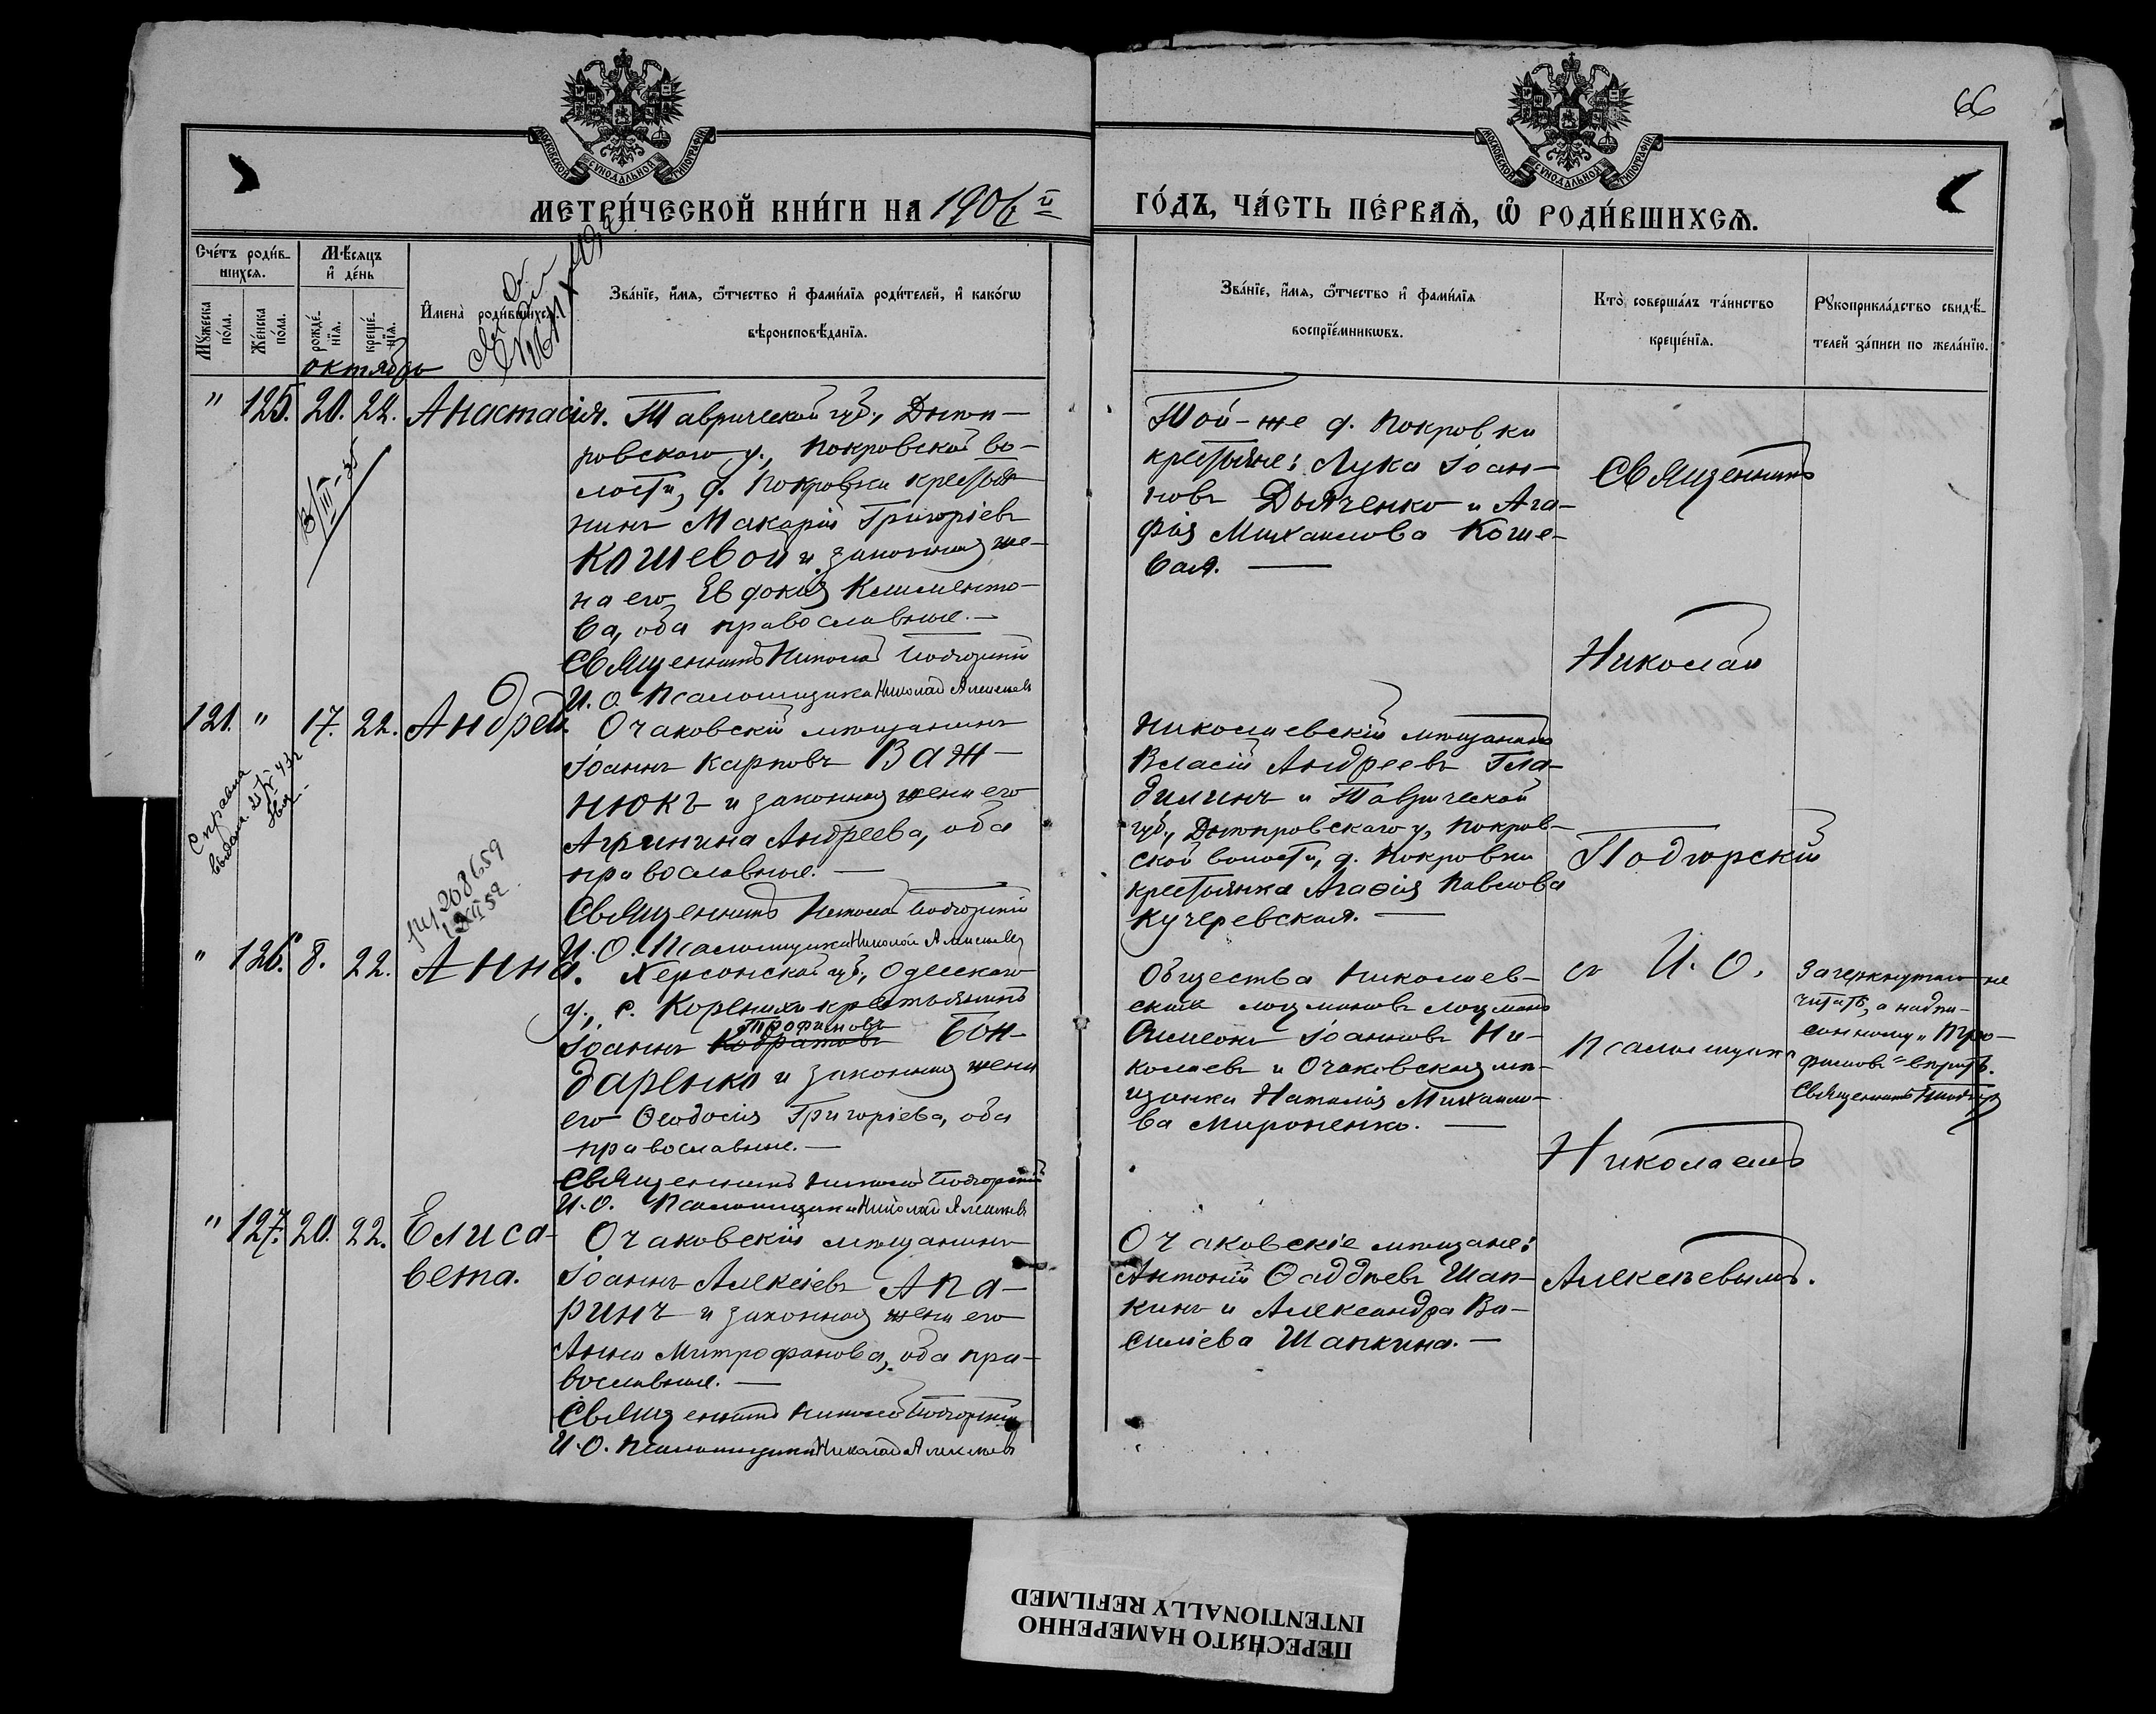 66
МОСКОВСКОЙ СУНОДАЛЬНОЙ ТИПОГРАФІИ
МОСКОВСКОЙ СУНОДАЛЬНОЙ ТИПОГРАФІИ
МЕТРИ́ЧЕСКОЙ КНИ́ГИ НА 1906 й
ГО́ДЪ, ЧА́СТЬ ПЕ́РВАѦ, Ѽ РОДИ́ВШИХСѦ.
Сче́тъ роди́в-
шихсѧ.
Мѣ́сѧцъ
и҆ де́нь
Мꙋ́жеска
по́ла.
Же́нска
по́ла.
рожде́-
нїѧ.
креще́-
нїѧ.
И҆мена̀ роди́вшихсѧ.
Зва́нїе, и҆́мѧ, ѻ҆́тчество и҆ фами́лїѧ роди́телей, и҆ како́гѡ
вѣроисповѣ́данїѧ.
Зва́нїе, и҆́мѧ, ѻ҆́тчество и҆ фами́лїѧ
воспрїе́мникѡвъ.
Кто̀ соверша́лъ та́инство
креще́нїѧ.
Рꙋкоприкла́дство свидѣ́-
телей за́писи по жела́нїю.
октябрь
" 125. 20. 22. Анастасія.
Таврической губ., Днѣп-
ровскаго у., Покровской во-
лости, д. Покровки крестья-
нинъ Макарій Григоріевъ
Кошевой и законная же-
на его Евдокія Климентo-
ва, оба православные. —
Священникъ Николай Подгорскій
И. О. Псаломщика Николай Алексѣевъ
Той-же д. Покровки
крестьяне: Лука Іоан-
новъ Дьяченко и Ага-
фія Михаилова Коше-
вая. —
Священникъ
Николай
121. " 17. 22. Андрей.
Очаковскій мѣщанинъ
Іоаннъ Карповъ Важ-
нюкъ и законная жена его
Агрипина Андреева, оба
православные. —
Священникъ Николай Подгорскій
И. О. Псаломщика Николай Алексѣевъ
Справка
выдана 43 г
Николаевскій мѣщанинъ
Власій Андреевъ Гла-
дилинъ и Таврической
губ., Днѣпровскаго у., Покров-
ской волости, д. Покровки
крестьянка Агафія Павлова
Кучеревская. —
Подгорскій
208659
XII 52
" 126. 8. 22. Анна.
Херсонской губ., Одесскаго
у., с. Коренихи крестьянинъ
Трофимовъ
Іоаннъ Бон-
даренко и законная жена
его Ѳеодосія Григоріева, оба
православные. —
Священникъ Николай Подгорскій
И. О. Псаломщика Николай Алексѣевъ
Общества Николаев-
скихъ лоцмановъ лоцманъ
Симеонъ Іоанновъ Ни-
колаевъ и Очаковская мѣ-
щанка Наталія Михаило-
ва Мироненко. —
съ И. О.
Псаломщика
Николаемъ
Зачеркнутаго не
читать, а надпи-
санному „Тро-
фимовъ" вѣрить.
Священникъ
" 127. 20. 22. Елиса-
вета.
Очаковскій мѣщанинъ
Іоаннъ Алексіевъ Апа-
ринъ и законная жена его
Анна Митрофанова, оба пра-
вославные. —
Священникъ Николай Подгорскій
И. О. Псаломщика Николай Алексѣевъ
Очаковскіе мѣщане:
Антоній Ѳаддѣевъ Шап-
кинъ и Александра Ва-
силіева Шапкина. —
Алексѣевымъ.
ПЕРЕСНЯТО НАМЕРЕННО
INTENTIONALLY REFILMED